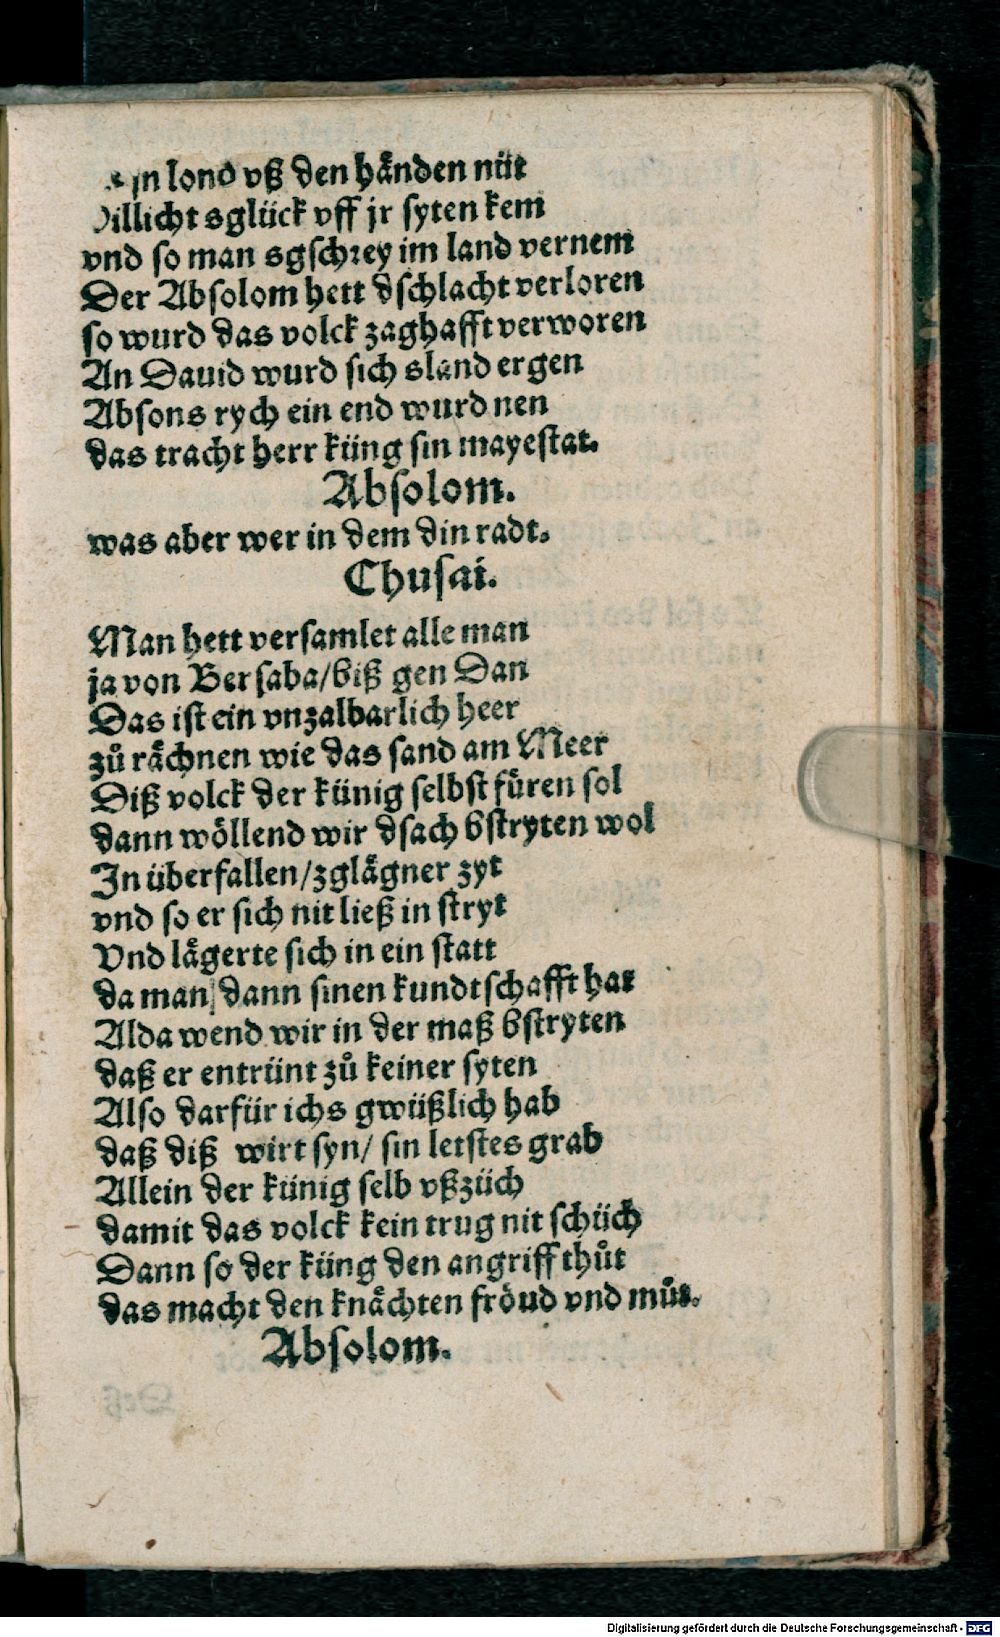 lond vß den händen nüt
Villicht sglück vff jr syten kem
vnd so man sgschrey im land vernem
Der Absolom hett dschlacht verloren
so wurd das volck zaghafft verworen
An Dauid wurd sich sland ergen
Absons rych ein end wurd nen
das tracht herr küng sin mayestat.
Absolom.
was aber wer in dem din radt.
Chusai.
Man hett versamlet alle man
ja von Bersaba/biß gen Dan
Das ist ein vnzalbarlich heer
zů rächnen wie das sand am Meer
Diß volck der künig selbst füren sol
dann wöllend wir dsach bstryten wol
In überfallen/zglägner zyt
vnd so er sich nit ließ in stryt
Vnd lägerte sich in ein statt
da man dann sinen kundtschafft hat
Alda wend wir in der maß bstryten
daß er entrünt zů keiner syten
Also darfür ichs gwüßlich hab
daß diß wirt syn/ sin letstes grab
Allein der künig selb vßzüch
damit das volck kein trug nit schüch
Dann so der küng den angriff thůt
das macht den knächten fröud vnd můt.
Absolom.
Digitalisierung gefördert durch die Deutsche Forschungsgemeinschaft - DFG